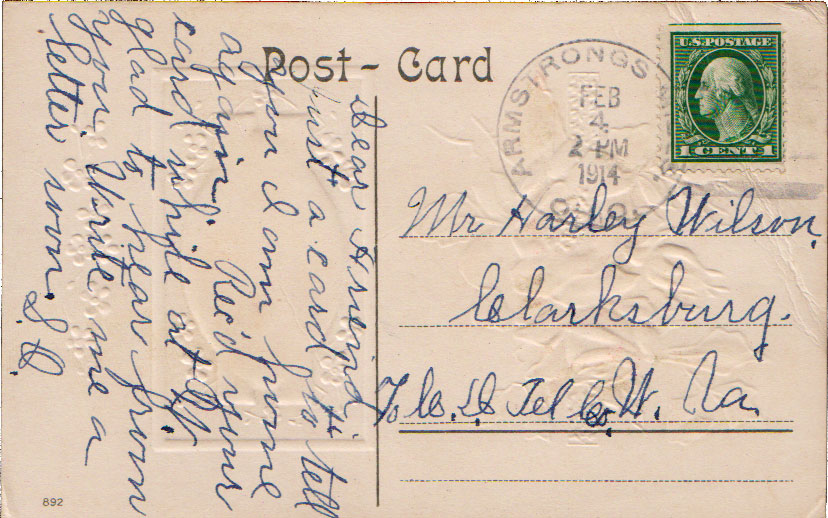 Post-Card
ARMSTRONGS
FEB
4
2 PM
1914
U.S. POSTAGE
1 CENT 1
Dear Friend,
Just a card to tell
you I am home
again. Rec'd your
card while at
glad to hear from
you. Write me a
letter soon.
Mr Harley Wilson,
Clarksburg.
Tel Co. W. Va.
892